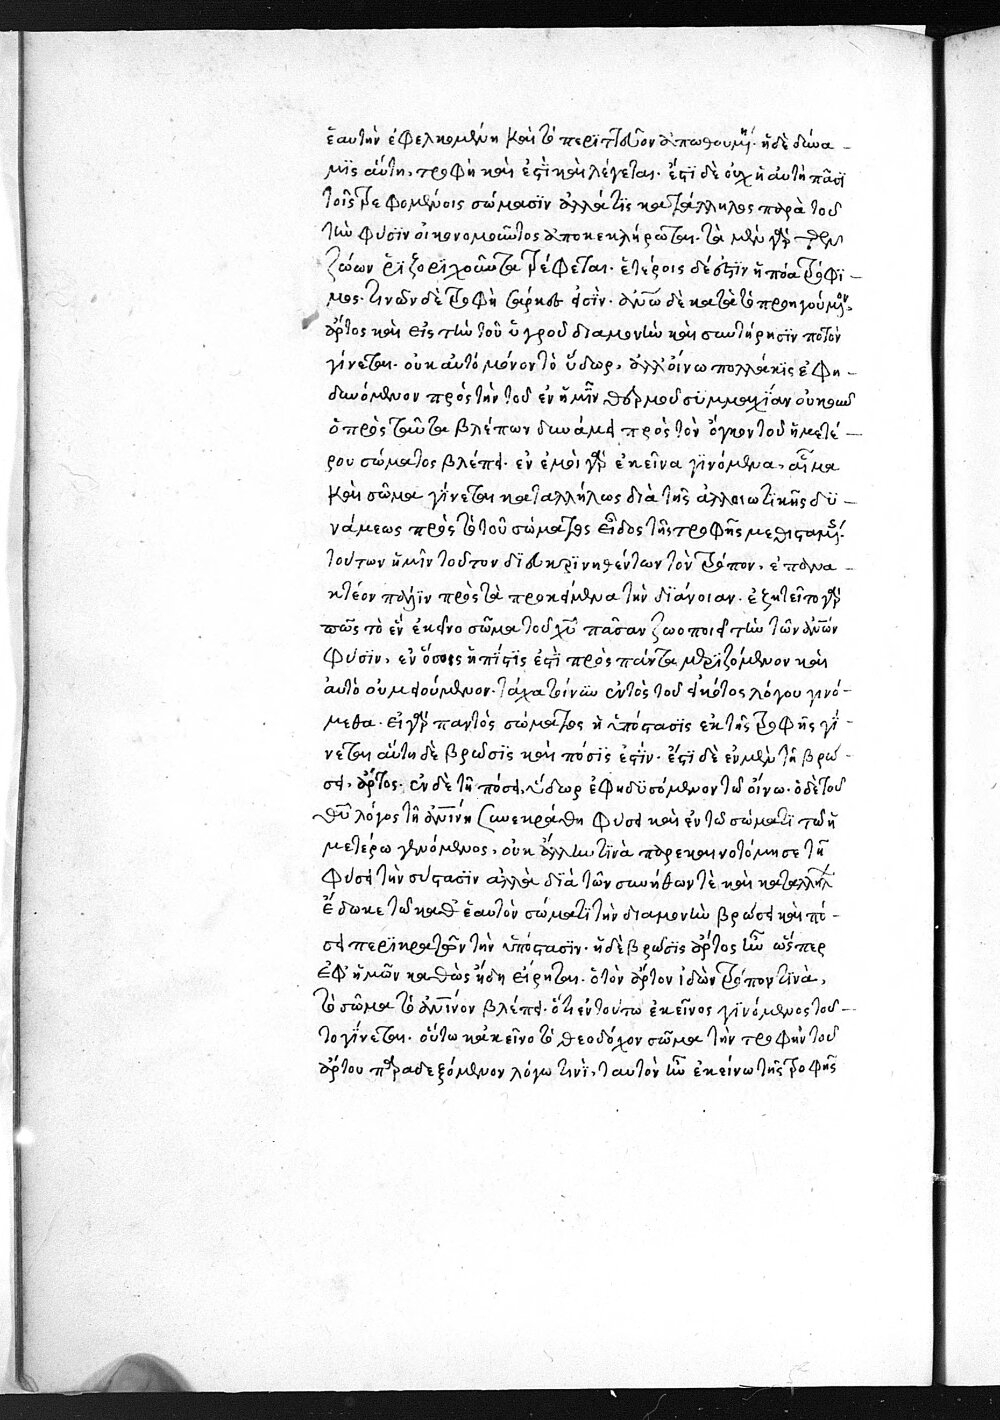 ἑαυτὴν ἐφελκομένη καὶ τὸ περιττεῦον ἀπωθουμένη. ἡ δὲ δύνα-
μις αὕτη, τροφὴ καὶ ἐστὶ καὶ λέγεται. ἔστι δὲ οὐχ ἡ αὐτὴ πᾶσι
τοῖς τρεφομένοις σώμασιν ἀλλά τις κατάλληλος παρὰ τοῦ
τὴν φύσιν οἰκονομοῦντος ἀποκεκλήρωται. τὰ μὲν γὰρ τῶν
ζώων ῥιζοριχοῦντα τρέφεται. ἑτέροις δέ ἐστιν ἡ πόα τρόφι-
μος. τινῶν δὲ τροφὴ σάρκες εἰσίν. ἀνθρώπω δὲ κατὰ τὸ προηγούμενον,
ἄρτος καὶ εἰς τὴν τοῦ ὑγροῦ διαμονὴν καὶ συντήρησιν ποτὸν
γίνεται. οὐκ αὐτὸ μόνον τὸ ὕδωρ, ἀλλ' οἴνω πολλάκις ἐφη-
δυνόμενον πρὸς τὴν τοῦ ἐν ἡμῖν θερμοῦ συμμαχίαν οὐκοῦν
ὁ πρὸς ταῦτα βλέπων δυνάμει πρὸς τὸν ὄγκον τοῦ ἡμετέ-
ρου σώματος βλέπει. ἐν ἐμοὶ γὰρ ἐκεῖνα γινόμενα, αἷμα
καὶ σῶμα γίνεται καταλλήλως διὰ τῆς ἀλλοιωτικῆς δυ-
νάμεως πρὸς τὸ τοῦ σώματος εἶδος τῆς τροφῆς μεθισταμένης.
τούτων ἡμῖν τοῦτον διευκρινηθέντων τὸν τρόπον, ἐπανα-
κτέον πάλιν πρὸς τὰ προκείμενα τὴν διάνοιαν. ἐζητεῖτο γὰρ
πῶς τὸ ἓν ἐκεῖνο σῶμα τοῦ χυ πᾶσαν ζωοποιεῖ τὴν τῶν ἀνῶν
φύσιν, ἐν ὅσοις ἡ πίστις ἐστὶ πρὸς πάντα μεριζόμενον καὶ
αὐτὸ οὐ μειούμενον. τάχα τοίνυν ἐντὸς τοῦ εἰκότος λόγου γινό-
μεθα. εἰ γὰρ παντὸς σώματος ἡ ὑπόστασις ἐκ τῆς τροφῆς γί-
νεται αὕτη δὲ βρῶσις καὶ πόσις ἐστίν. ἔστι δὲ ἐν μὲν τῆ βρώ-
σει, ἄρτος. ἐν δὲ τῆ πόσει, ὕδωρ ἐφηδυσόμενον τῶ οἴνω. ὁ δὲ τοῦ
θυ λόγος τῆ ἀνίνη συνεκράθη φύσει καὶ ἐν τῶ σώματι τῶ ἡ
μετέρω γενόμενος, οὐκ ἄλλην τινὰ παρεκαινοτόμησε τῆ
φύσει τὴν σύστασιν ἀλλὰ διὰ τῶν συνήθων τὲ καὶ καταλλήλων
ἔδωκε τῶ καθ' ἑαυτὸν σώματι τὴν διαμονὴν βρώσει καὶ πό-
σει περικρατῶν τὴν ὑπόστασιν. ἡ δὲ βρῶσις ἄρτος ἦν ὥσπερ
ἐφ' ἡμῶν καθὼς ἤδη εἴρηται. ὁ τὸν ἄρτον ἰδὼν τρόπον τινὰ,
τὸ σῶμα τὸ ἀνίνον βλέπει. ὅτι ἐν τούτω ἐκεῖνος γινόμενος τοῦ-
το γίνεται. οὕτω κἀκεῖνο τὸ θεοδόχον σῶμα τὴν τροφὴν τοῦ
ἄρτου παραδεξόμενον λόγω τινὶ, ταυτὸν ἦν ἐκείνω τῆς τροφῆς